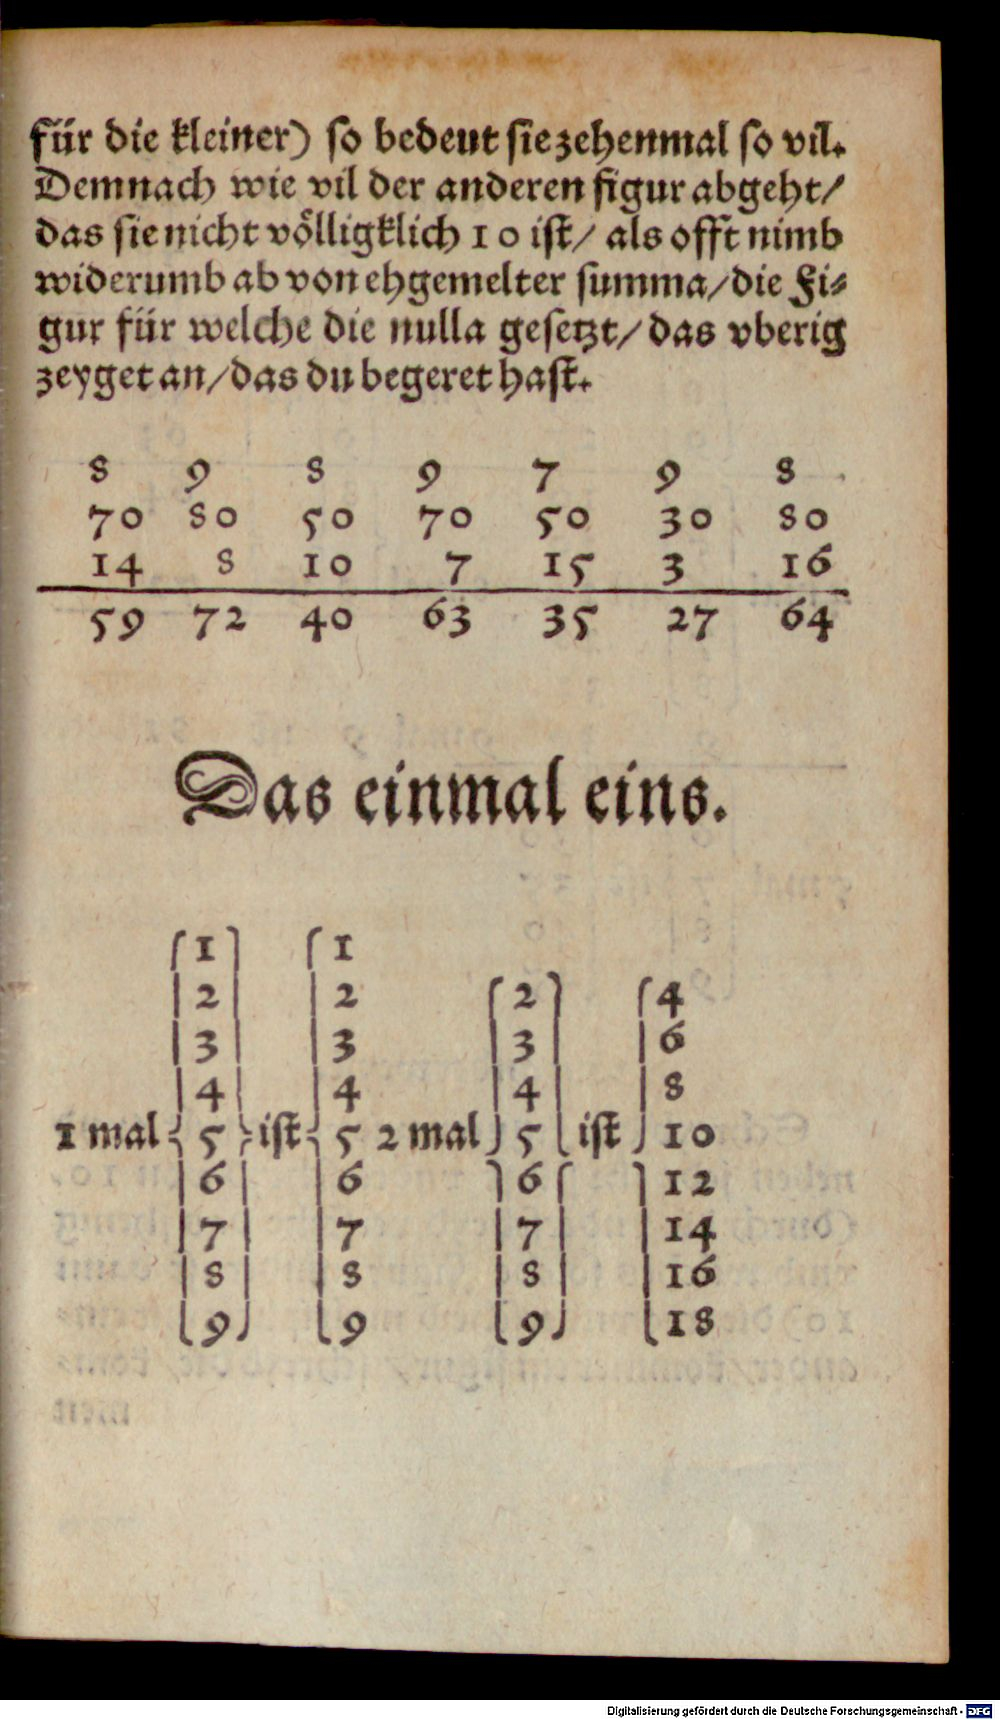 für die kleiner) so bedeut sie zehenmal so vil.
Demnach wie vil der anderen figur abgeht/
das sie nicht völligklich 10 ist/ als offt nimb
widerumb ab von ehgemelter summa/die Fi⸗
gur für welche die nulla gesetzt/das vberig
zeyget an/das du begeret hast.
8 9 8 9 7 9 8
70 80 50 70 50 30 80
14 8 10 7 15 3 16
59 72 40 63 35 27 64
Das einmal eins.
1 1
2 2 2 4
3 3 3 6
4 4 4 8
1 mal 5 ist 5 2 mal 5 ist 10
6 6 6 12
7 7 7 14
8 8 8 16
9 9 9 18
Digitalisierung gefördert durch die Deutsche Forschungsgemeinschaft - DFG